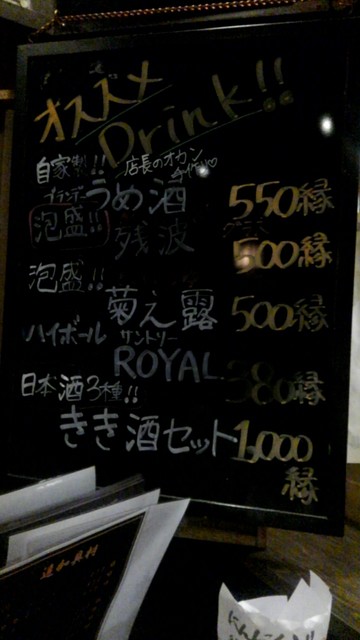 オススメ
Drink!!
自家製!! 店長のオカン
手作り♡
ブランデーうめ酒 550縁
泡盛!! 残波 500縁
泡盛!!
菊之露 500縁
ハイボール サントリー
ROYAL 380縁
日本酒3種!!
きき酒セット 1,000
縁
追加具材
にんにく